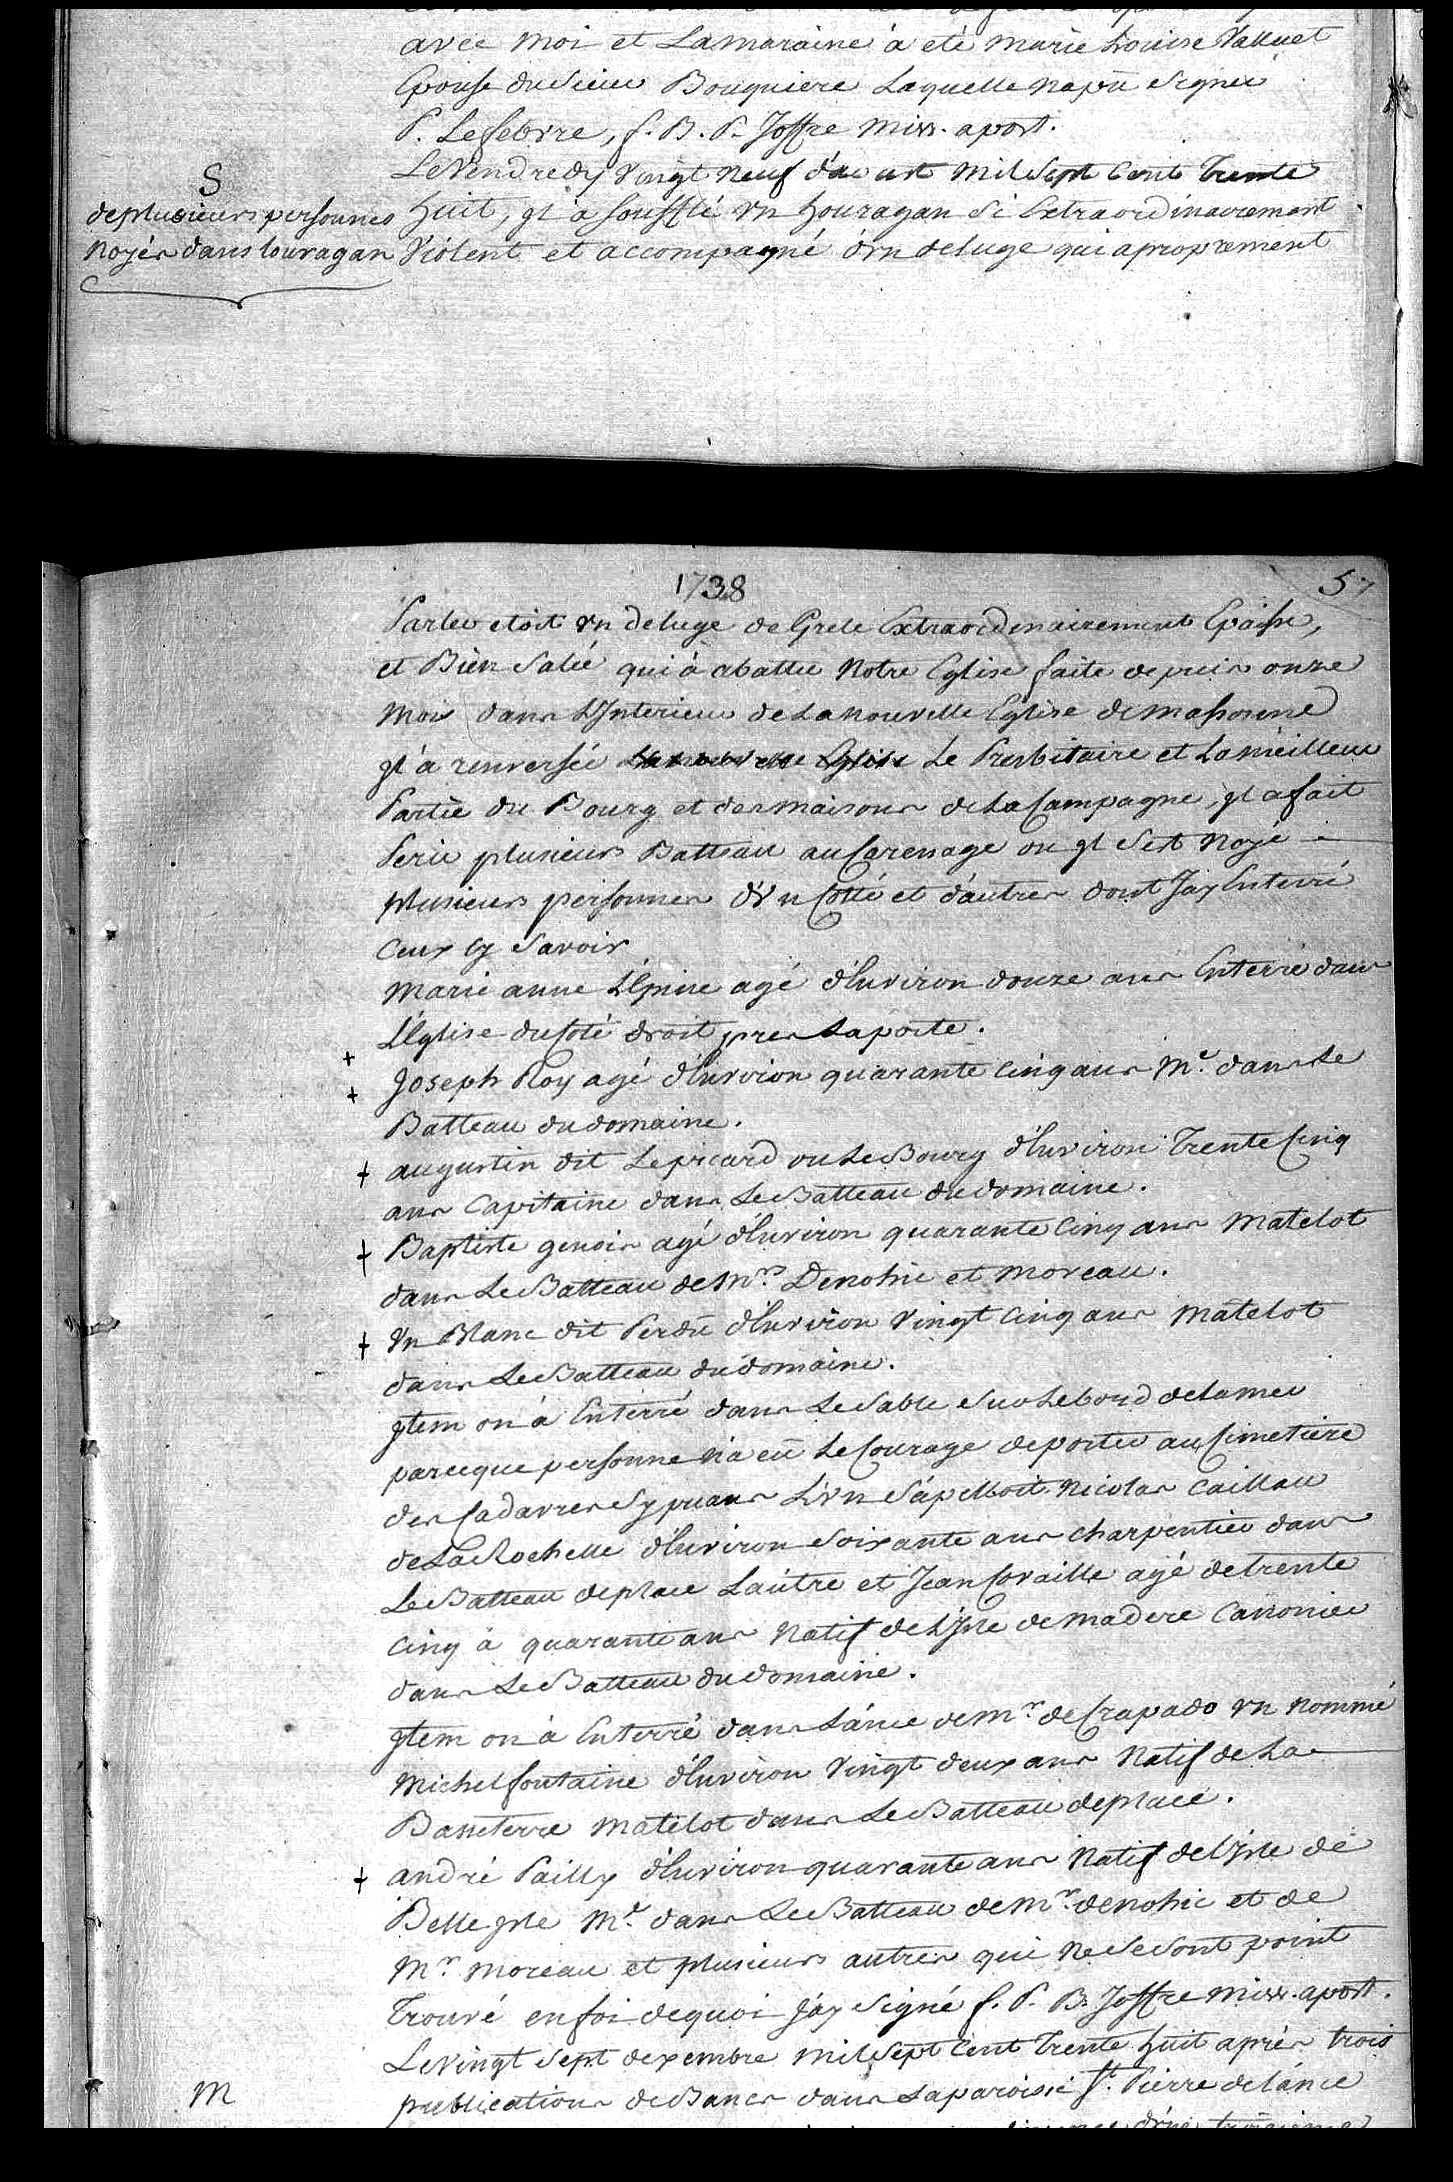 avec moi et Lamaraine à eté marie Louise Valluet
Epouse du Sieur Bouguiere Laquelle na pû Signer
P. Lefebvre, f. B. P. Joffre miss. apost.
S
de plusieurs personnes
noyés dans louragan
Le Vendredy Vingt neuf d'aout mil Sept Cent Trente
huit, jl à soufflé vn houragan Si Extraordinairement
Violent et accompagné d'vn deluge qui a proprement
1738
57
Parler etoit vn deluge de Grele Extraordinairement Epaisse,
et Bien Salée qui à abattu notre Eglise faite depuis onze
mois dans L'Jnterieur de La nouvelle Eglise de massonne
jl à renversée La nouvelle Eglise Le Presbitaire et La meilleur
Partie du Bourg et des maisons de La Campagne, jl a fait
Perir plusieurs Batteau au Carenage ou jl s'est noyé
plusieurs personnes d'vn Cotté et d'autres dont J'ay Enterré
Ceux cy Savoir
Marie anne L'Epine agé d'Environ douze ans Enterré dans
L'Eglise du Coté droit pres La porte.
+
+ Joseph Roy agé d'Environ quarante Cinq ans Me. dans Le
Batteau du domaine.
+ augustin dit Le picard ou Le Bourg d'Environ Trente Cinq
ans Capitaine dans Le Batteau du domaine.
+ Baptiste genois agé d'Environ quarante Cinq ans Matelot
dans Le Batteau de Mrs. Denohic et Moreau.
+ Vn Blanc dit Perdu d'Environ Vingt Cinq ans Matelot
dans Le Batteau du domaine.
Jtem on à Enterré dans Le Sable Sur Le bord de la mer
parceque personne n'a eû Le Courage de porter au Cimetiere
des Cadavres Sy puans L'vn S'apelloit Nicolas Caillau
de La Rochelle d'Environ Soixante ans Charpentier dans
Le Batteau de place L'autre et Jean Coraille agé de trente
Cinq à quarante ans Natif de L'Jsle de Madere Canonier
dans Le Batteau du domaine.
Jtem on à Enterré dans L'ánce de Mr. de Crapado vn nommé
Michel fontaine d'Environ Vingt deux ans Natif de La
Basseterre Matelot dans Le Batteau de place.
+ andré Pailly d'Environ quarante ans Natif de L'Jsle de
Belle Jsle Me. dans Le Batteau de Mr. denohic et de
Mr. Moreau et plusieurs autres qui ne Se Sont point
Trouvé en foi de quoi J'ay Signé f. P. B. Joffre miss. apost.
M
Le Vingt Sept dexembre mil Sept Cent Trente huit aprés trois
publications de Bancs dans La paroisse St. Pierre de L'ánce